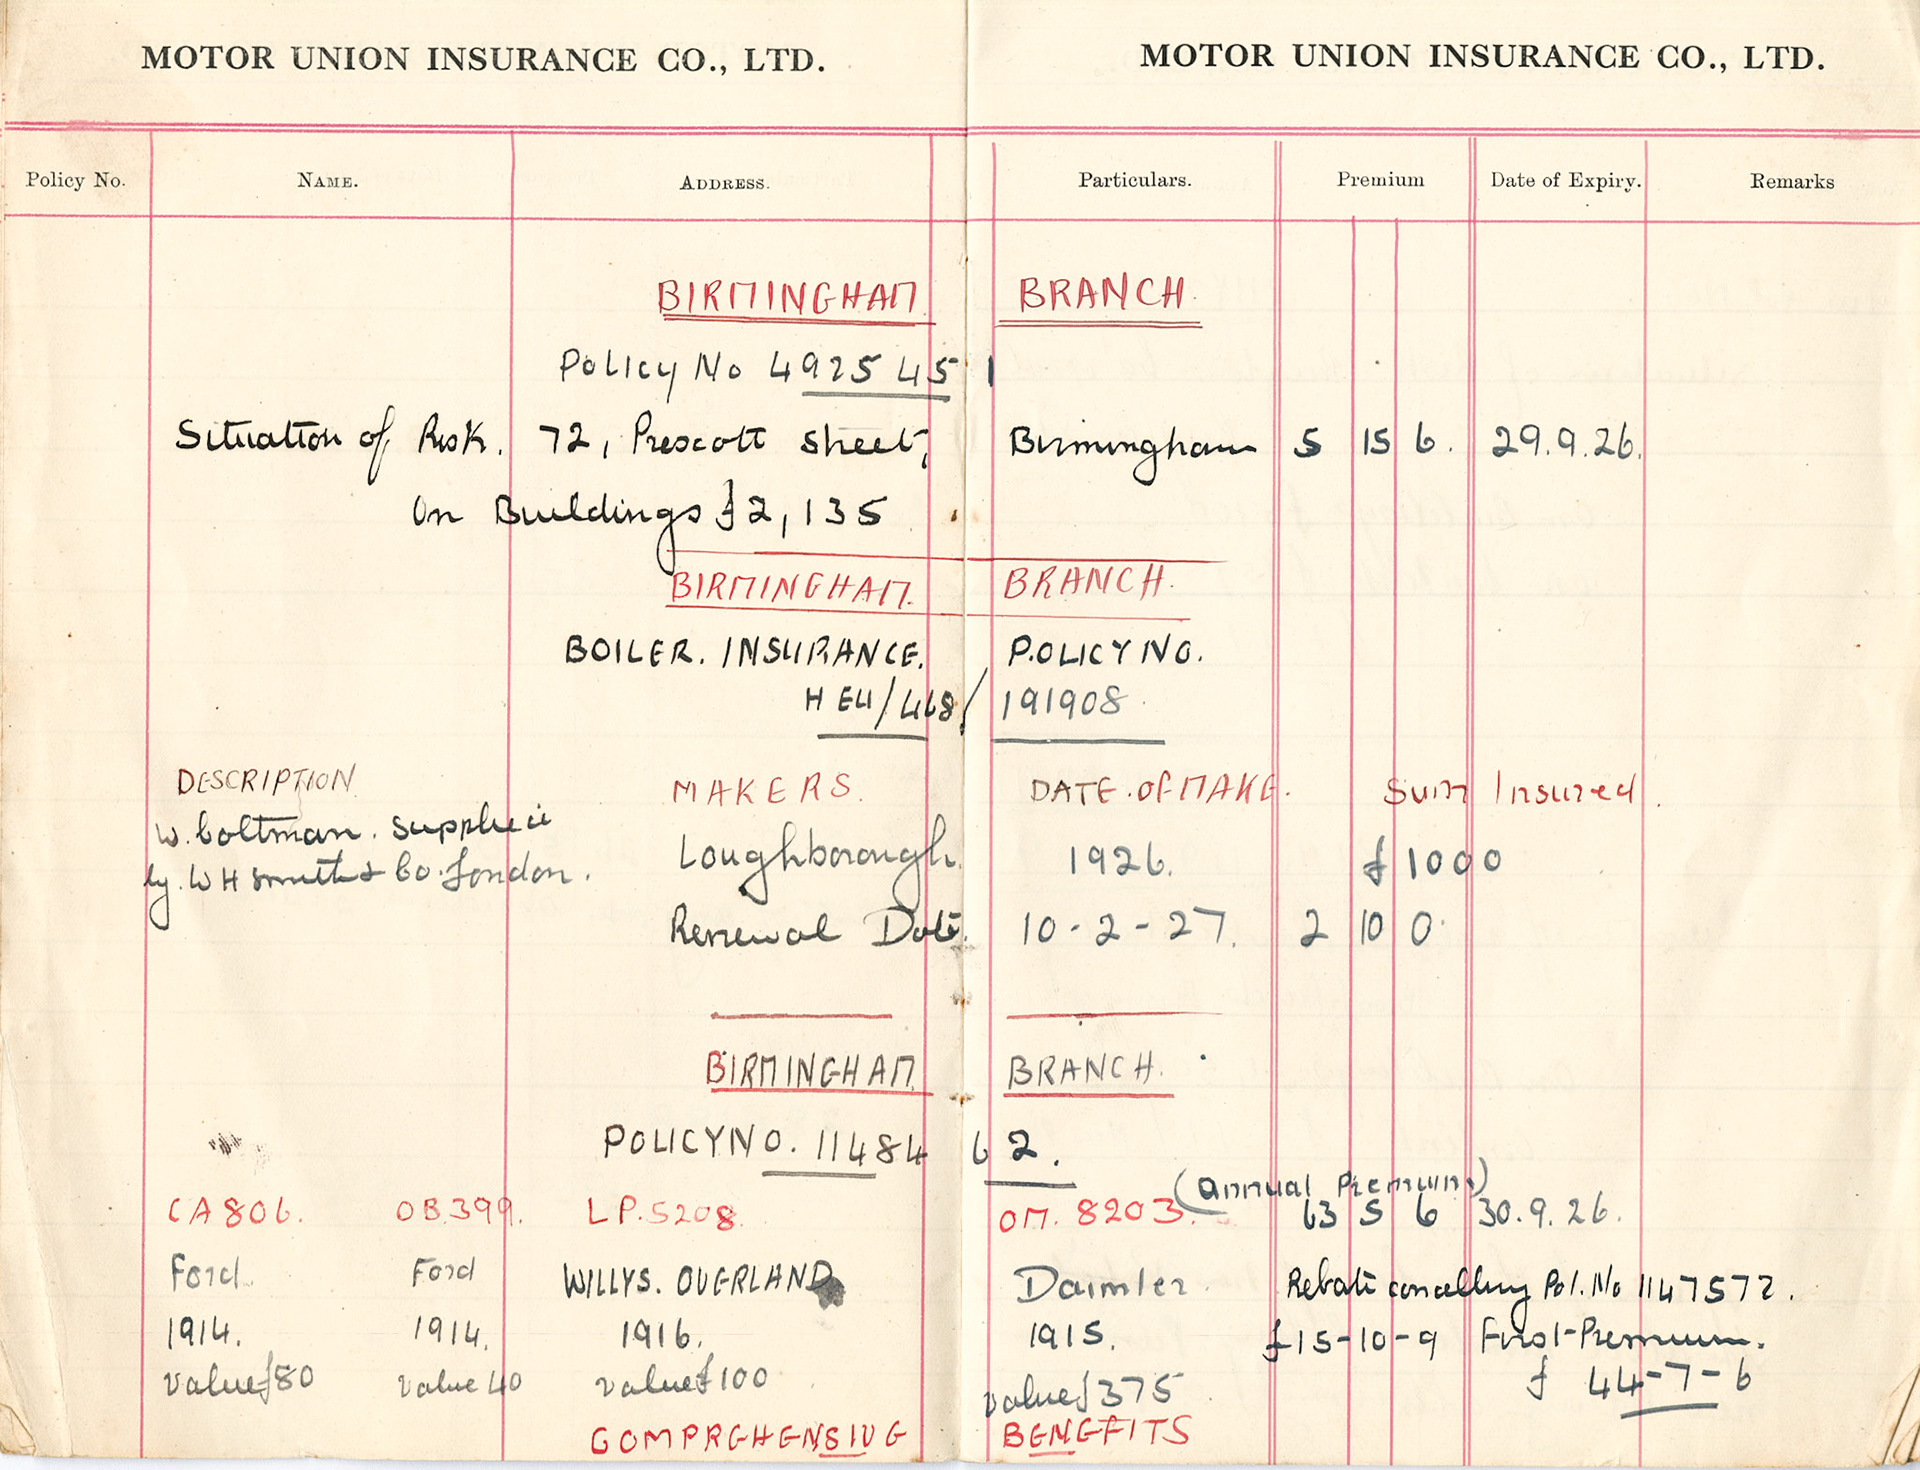 MOTOR UNION INSURANCE CO., LTD. MOTOR UNION INSURANCE CO., LTD.
Policy No. NAME. ADDRESS. Particulars. Premium Date of Expiry. Remarks
BIRMINGHAM BRANCH.
Policy No 4925451
Situation of Risk. 72, Prescott Street, Birmingham 5 15 6. 29.9.26.
On Buildings £2,135
BIRMINGHAM. BRANCH.
BOILER. INSURANCE. POLICY NO.
/468/191908
DESCRIPTION MAKERS. DATE OF MAKE. Sum Insured.
W. Coltman. supplied Loughborough. 1926. £1000
by. W H Smith & Co. London.
Renewal Date. 10-2-27. 2 10 0.
BIRMINGHAM BRANCH.
POLICY NO. 1148462.
(Annual Premium)
CA 806. OB.399. LP.5208. OM. 8203. 63 5 6 30.9.26.
Ford. Ford WILLYS. OVERLAND Daimler. Rebate cancelling Pol. No 1147572.
1914. 1914. 1916. 1915. £15-10-9 First-Premium.
value £80 value 40 value £100 value £375 £ 44-7-6
COMPREHENSIVE BENEFITS